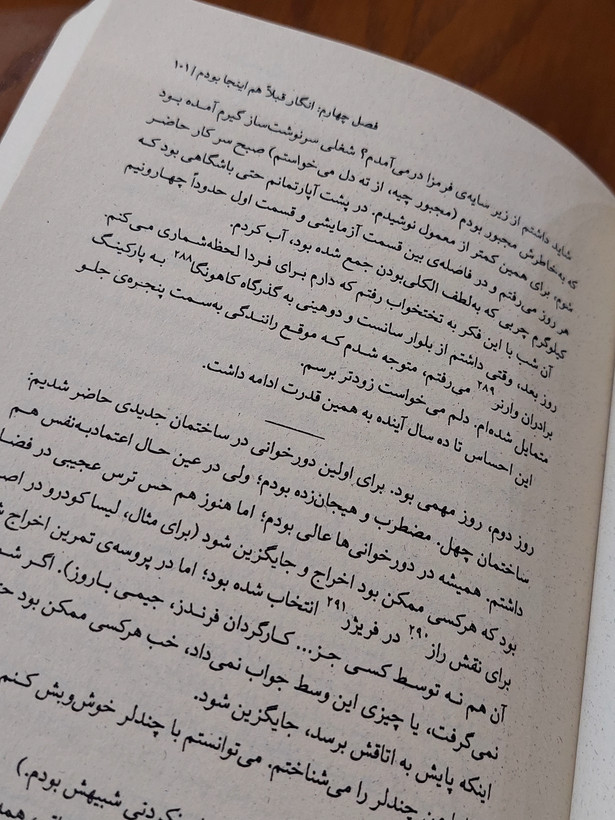 فصل چهارم: انگار قبلاً هم اینجا بودم | ۱۰۱
شاید داشتم از زیر سایه‌ی فرمزا درمی‌آمدم؟ شغلی سرنوشت‌ساز گیرم آمده بود
که به‌خاطرش مجبور بودم (مجبور چیه، از ته دل می‌خواستم) صبح سر کار حاضر
شوم، برای همین کمتر از معمول نوشیدم. در پشت آپارتمانم حتی باشگاهی بود که
هر روز می‌رفتم و در فاصله‌ی بین قسمت آزمایشی و قسمت اول حدوداً چهارونیم
کیلوگرم چربی که به‌لطف الکلی‌بودن جمع شده بود، آب کردم.
آن شب با این فکر به تختخواب رفتم که دارم برای فردا لحظه‌شماری می‌کنم.
روز بعد، وقتی داشتم از بلوار سانست و دوهینی به گذرگاه کاهونگا۲۸۸ به پارکینگ
برادران وارنر۲۸۹ می‌رفتم، متوجه شدم که موقع رانندگی به‌سمت پنجره‌ی جلو
متمایل شده‌ام. دلم می‌خواست زودتر برسم.
این احساس تا ده سال آینده به همین قدرت ادامه داشت.
روز دوم، روز مهمی بود. برای اولین دورخوانی در ساختمان جدیدی حاضر شدیم:
ساختمان چهل. مضطرب و هیجان‌زده بودم؛ ولی در عین حال اعتمادبه‌نفس هم
داشتم. همیشه در دورخوانی‌ها عالی بودم؛ اما هنوز هم حس ترس عجیبی در
بود که هرکسی ممکن بود اخراج و جایگزین شود (برای مثال، لیسا کودرو در
برای نقش راز۲۹۰ در فریژر۲۹۱ انتخاب شده بود؛ اما در پروسه‌ی تمرین اخراج
آن هم نه توسط کسی جز... کارگردان فرندز، جیمی باروز). اگر
نمی‌گرفت، یا چیزی این وسط جواب نمی‌داد، خب هرکسی ممکن بود
اینکه پایش به اتاقش برسد، جایگزین شود.
چندلر را می‌شناختم. می‌توانستم با چندلر خوش‌وبش کنم
شبیهش بودم.)